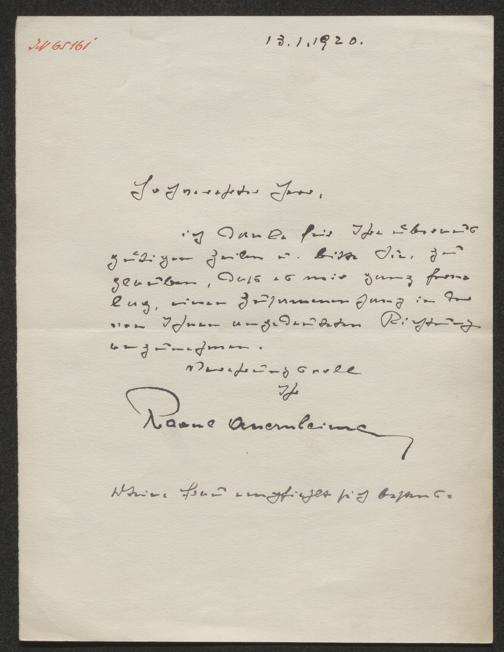 IN 65161
13.1.1920.
Hochverehrter Herr,
ich danke für Ihre überaus
gütigen Zeilen u. bitte Sie, zu
glauben, daß es mir ganz ferne
lag, einen Zusammenhang in der
von Ihnen angedeuteten Richtung
anzunehmen.
Verehrungsvoll
Ihr
Raoul Auernheimer
Meine Frau empfiehlt sich bestens.